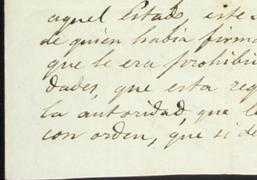 aquel Estado, este
de quien habia firma
que le era prohibi
dades, que esta reg
la autoridad, que l
con orden, que si de